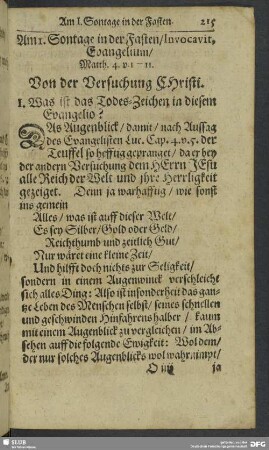 Am I. Sontage in der Fasten. 215
Am 1. Sontage in der Fasten/ Invocavit,
Evangelium/
Matth. 4. v. 1 - 11.
Von der Versuchung CHristi.
1. Was ist das Todes-Zeichen in diesem
Evangelio?
DAs Augenblick/ damit/ nach Aussag
des Evangelisten Luc. Cap. 4. v. 5. der
Teuffel so hefftig gepranget/ da er bey
der andern Versuchung dem HErrn JEsu
alle Reich der Welt und ihre Herrligkeit
gezeiget. Denn ja warhafftig/ wie sonst
ins gemein
Alles/ was ist auff dieser Welt/
Es sey Silber/ Gold oder Geld/
Reichthumb und zeitlich Gut/
Nur wäret eine kleine Zeit/
Und hilfft doch nichts zur Seligkeit/
sondern in einem Augenwinck verschleicht
sich alles Ding: Also ist insonderheit das gan-
tze Leben des Menschen selbst/ seines schnellen
und geschwinden Hinfahrens halber/ kaum
mit einem Augenblick zu vergleichen/ im Ab-
sehen auff die folgende Ewigkeit: Wol dem/
der nur solches Augenblicks wol wahrnimpt/
O iiij ja
SLUB